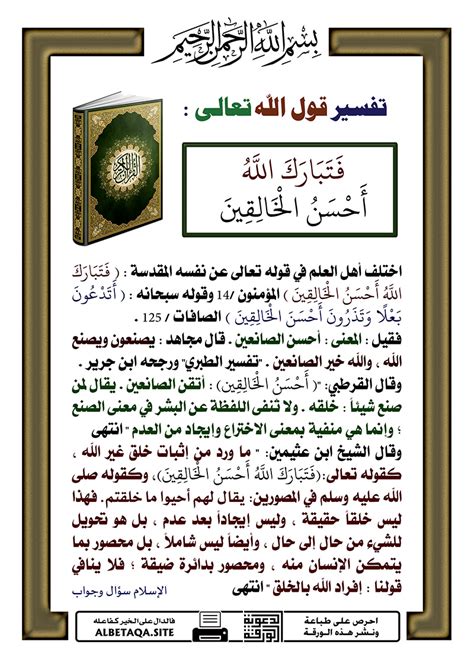 بسم الله الرحمن الرحيم
تفسير قول الله تعالى :
القرآن الكريم
فَتَبَارَكَ اللَّهُ
أَحْسَنُ الْخَالِقِينَ
اختلف أهل العلم في قوله تعالى عن نفسه المقدسة : ( فَتَبَارَكَ
اللَّهُ أَحْسَنُ الْخَالِقِينَ ) المؤمنون /14 وقوله سبحانه : ( أَتَدْعُونَ
بَعْلًا وَتَذَرُونَ أَحْسَنَ الْخَالِقِينَ ) الصافات / 125 .
فقيل : المعنى : أحسن الصانعين . قال مجاهد : يصنعون ويصنع
الله ، والله خير الصانعين . "تفسير الطبري" ورجحه ابن جرير .
وقال القرطبي: "( أَحْسَنُ الْخَالِقِينَ) : أتقن الصانعين . يقال لمن
صنع شيئاً : خلقه . ولا تنفى اللفظة عن البشر في معنى الصنع
؛ وإنما هي منفية بمعنى الاختراع وإيجاد من العدم " انتهى
وقال الشيخ ابن عثيمين: " ما ورد من إثبات خلق غير الله ،
كقوله تعالى:(فَتَبَارَكَ اللَّهُ أَحْسَنُ الْخَالِقِينَ)، وكقوله صلى
الله عليه وسلم في المصورين: يقال لهم أحيوا ما خلقتم. فهذا
ليس خلقاً حقيقة ، وليس إيجاداً بعد عدم ، بل هو تحويل
للشيء من حال إلى حال ، وأيضاً ليس شاملاً ، بل محصور بما
يتمكن الإنسان منه ، ومحصور بدائرة ضيقة ؛ فلا ينافي
قولنا : إفراد الله بالخلق " انتهى
الإسلام سؤال وجواب
احرص على طباعة
ونشر هذه الورقة
الورقة الدعوية
فالدال على الخير كفاعله
ALBETAQA.SITE